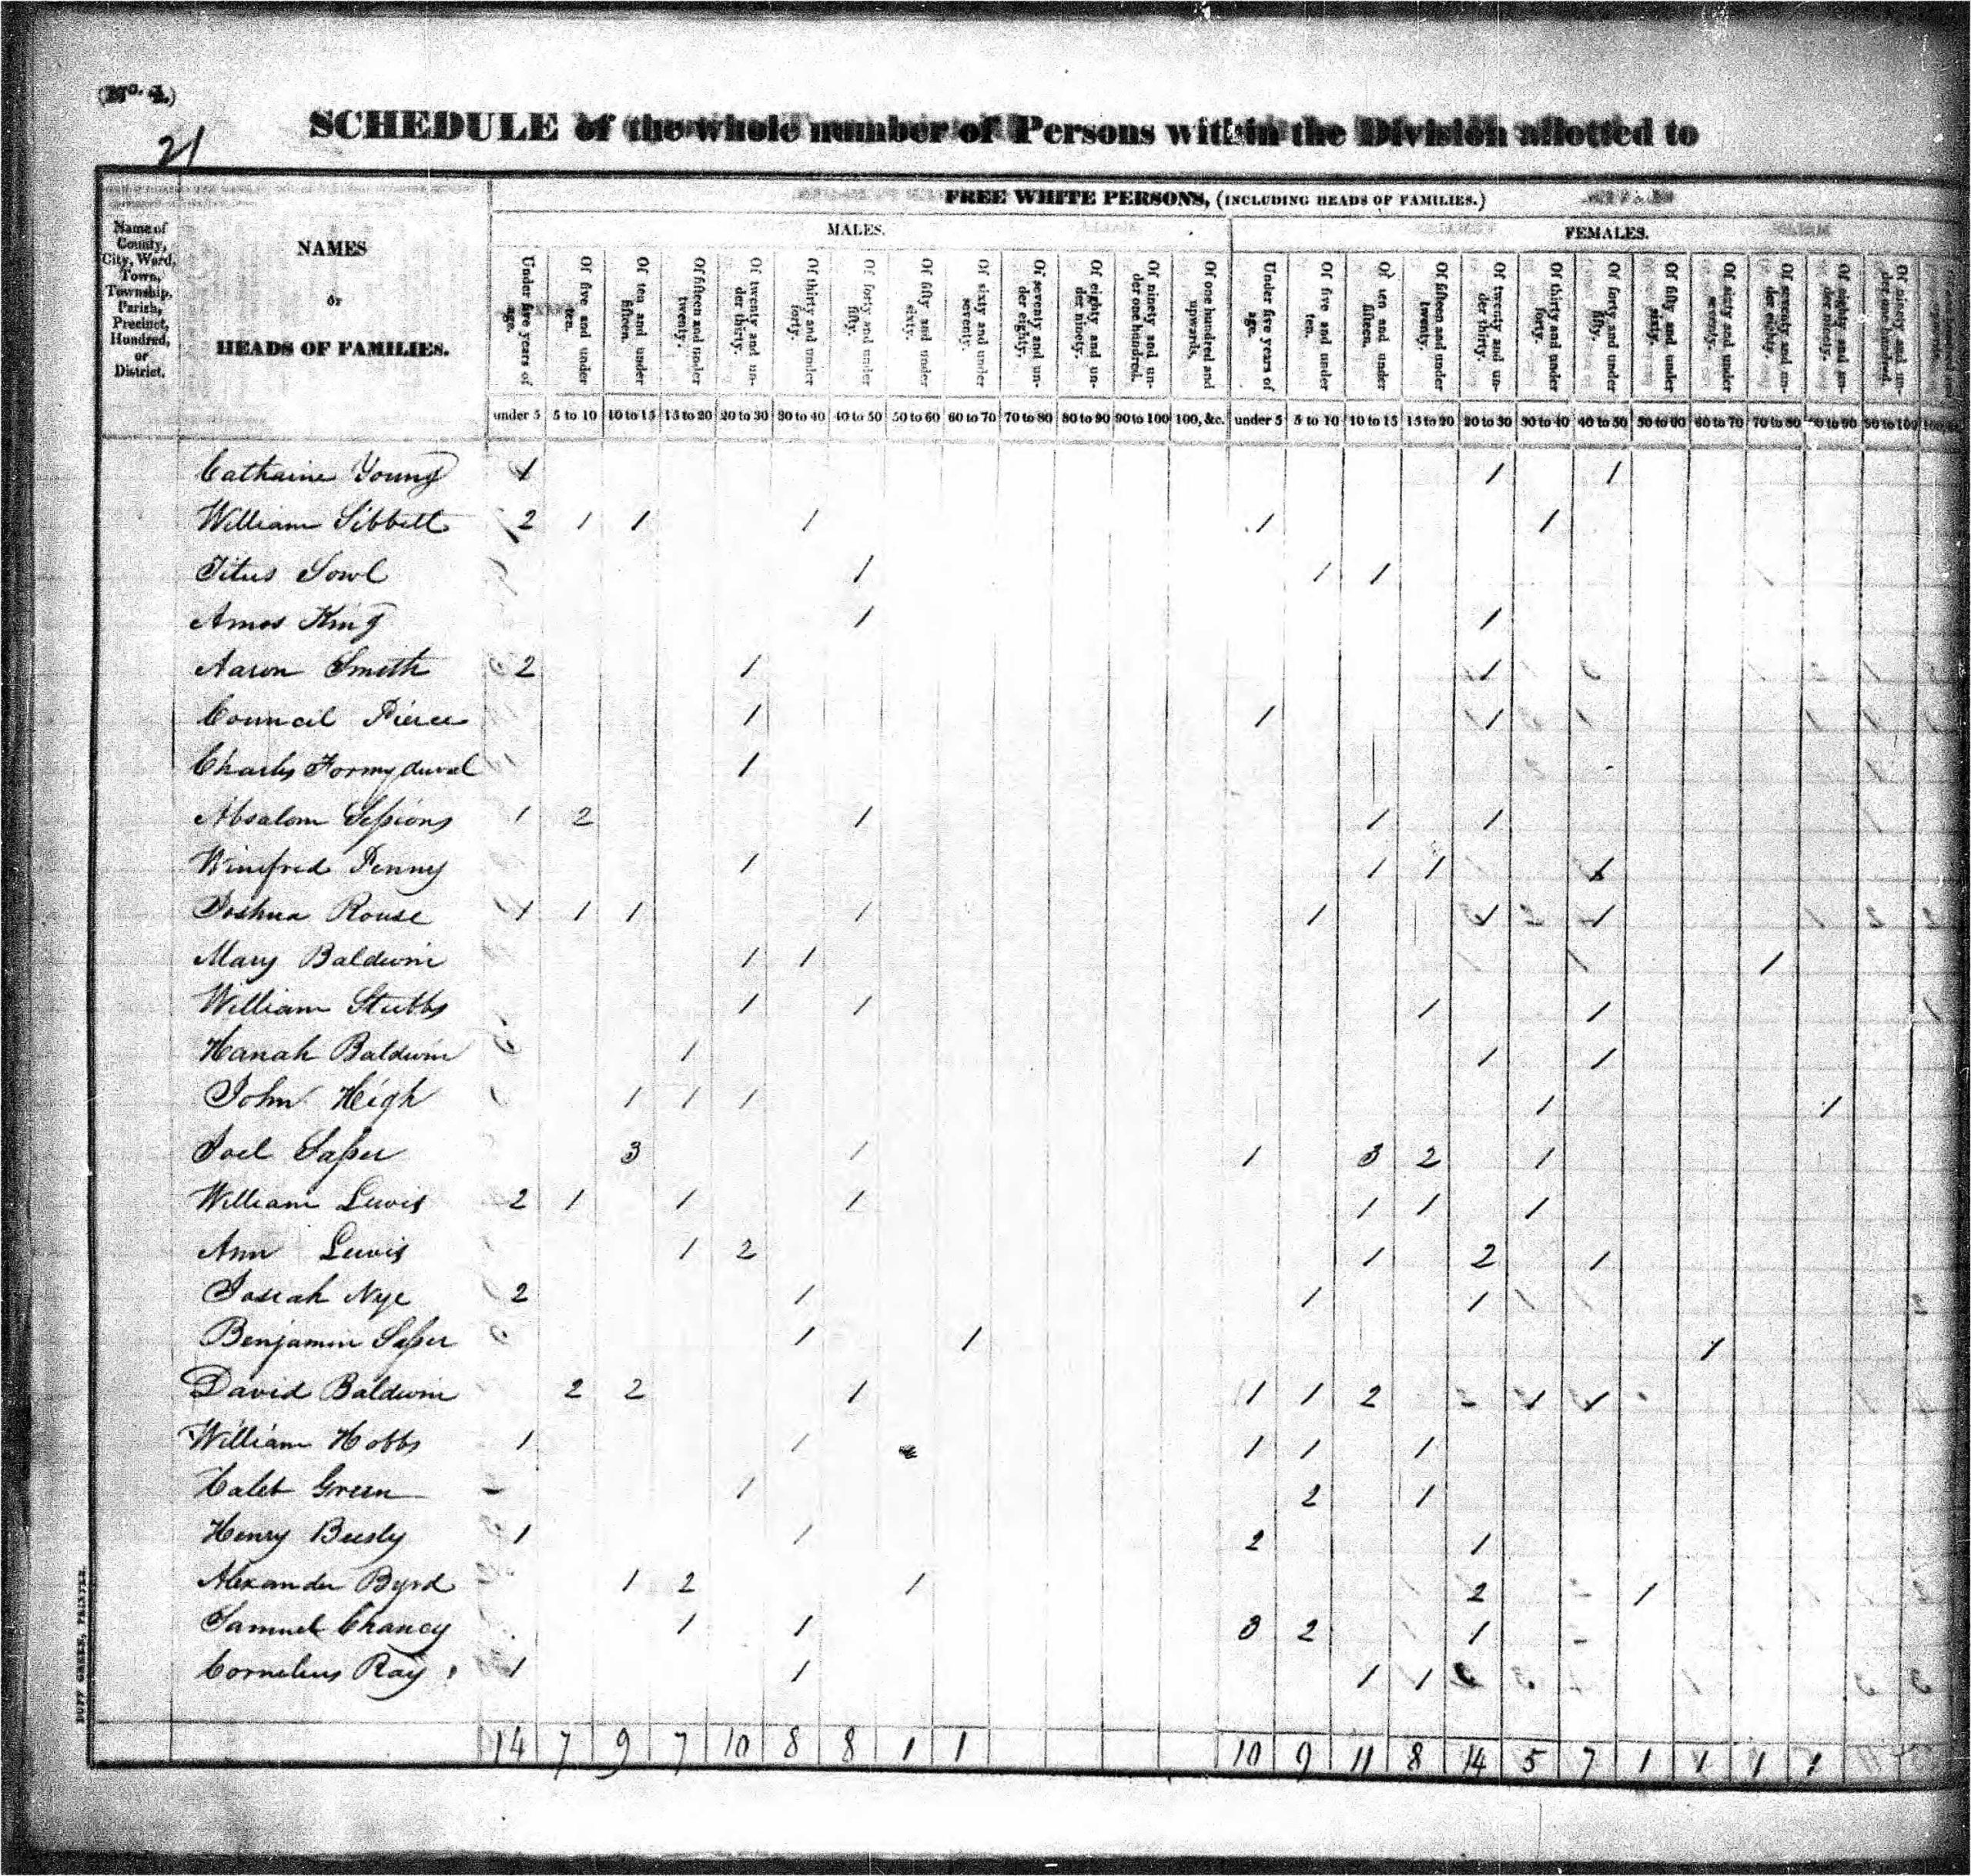 (No. 1.)
21
SCHEDULE of the whole number of Persons within the Division allotted to
Name of County, City, Ward, Town, Township, Parish, Precinct, Hundred, or District.
NAMES
OF
HEADS OF FAMILIES.
FREE WHITE PERSONS, (INCLUDING HEADS OF FAMILIES.)
MALES. FEMALES.
Under five years of age. Of five and under ten. Of ten and under fifteen. Of fifteen and under twenty. Of twenty and under thirty. Of thirty and under forty. Of forty and under fifty. Of fifty and under sixty. Of sixty and under seventy. Of seventy and under eighty. Of eighty and under ninety. Of ninety and under one hundred. Of one hundred and upwards. Under five years of age. Of five and under ten. Of ten and under fifteen. Of fifteen and under twenty. Of twenty and under thirty. Of thirty and under forty. Of forty and under fifty. Of fifty and under sixty. Of sixty and under seventy. Of seventy and under eighty. Of eighty and under ninety. Of ninety and under one hundred.
under 5 5 to 10 10 to 15 15 to 20 20 to 30 30 to 40 40 to 50 50 to 60 60 to 70 70 to 80 80 to 90 90 to 100 100, &c. under 5 5 to 10 10 to 15 15 to 20 20 to 30 30 to 40 40 to 50 50 to 60 60 to 70 70 to 80 80 to 90 90 to 100
Catharine Young 1 1 1
William Sibbett 2 1 1 1 1 1
Titus Sowl 1 1 1
Amos King 1 1
Aaron Smith 2 1 1
Council Pierce 1 1 1
Charles Formyduval 1
Absalom Sessions 1 2 1 1 1
Winefred Penny 1 1 1 1
Joshua Rouse 1 1 1 1 1 1 1
Mary Baldwin 1 1 1
William Stubbs 1 1 1 1
Hanah Baldwin 1 1 1
John High 1 1 1 1 1
Joel Sasser 3 1 1 3 2 1
William Lewis 2 1 1 1 1 1 1
Ann Lewis 1 2 1 2 1
Josiah Nye 2 1 1 1
Benjamin Sasser 1 1 1
David Baldwin 2 2 1 1 1 2 1 1
William Hobbs 1 1 1 1 1
Caleb Green 1 2 1
Henry Beesly 1 1 2 1
Alexander Byrd 1 2 1 2 1
Samuel Chancy 1 1 3 2 1
Cornelius Ray 1 1 1 1
14 7 9 7 10 8 8 1 1 10 9 11 8 14 5 7 1 1 1 1
DUFF GREEN, PRINTER.